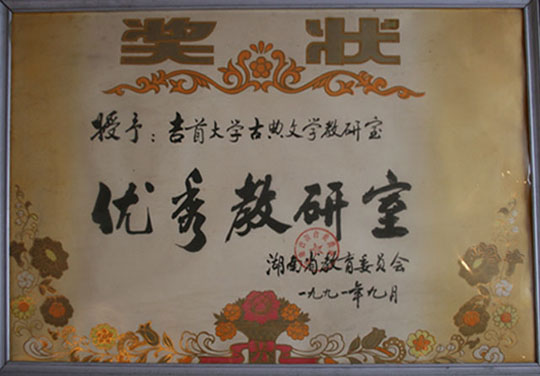 奖状
授予：吉首大学古典文学教研室
优秀教研室
湖南省教育委员会
一九九一年九月